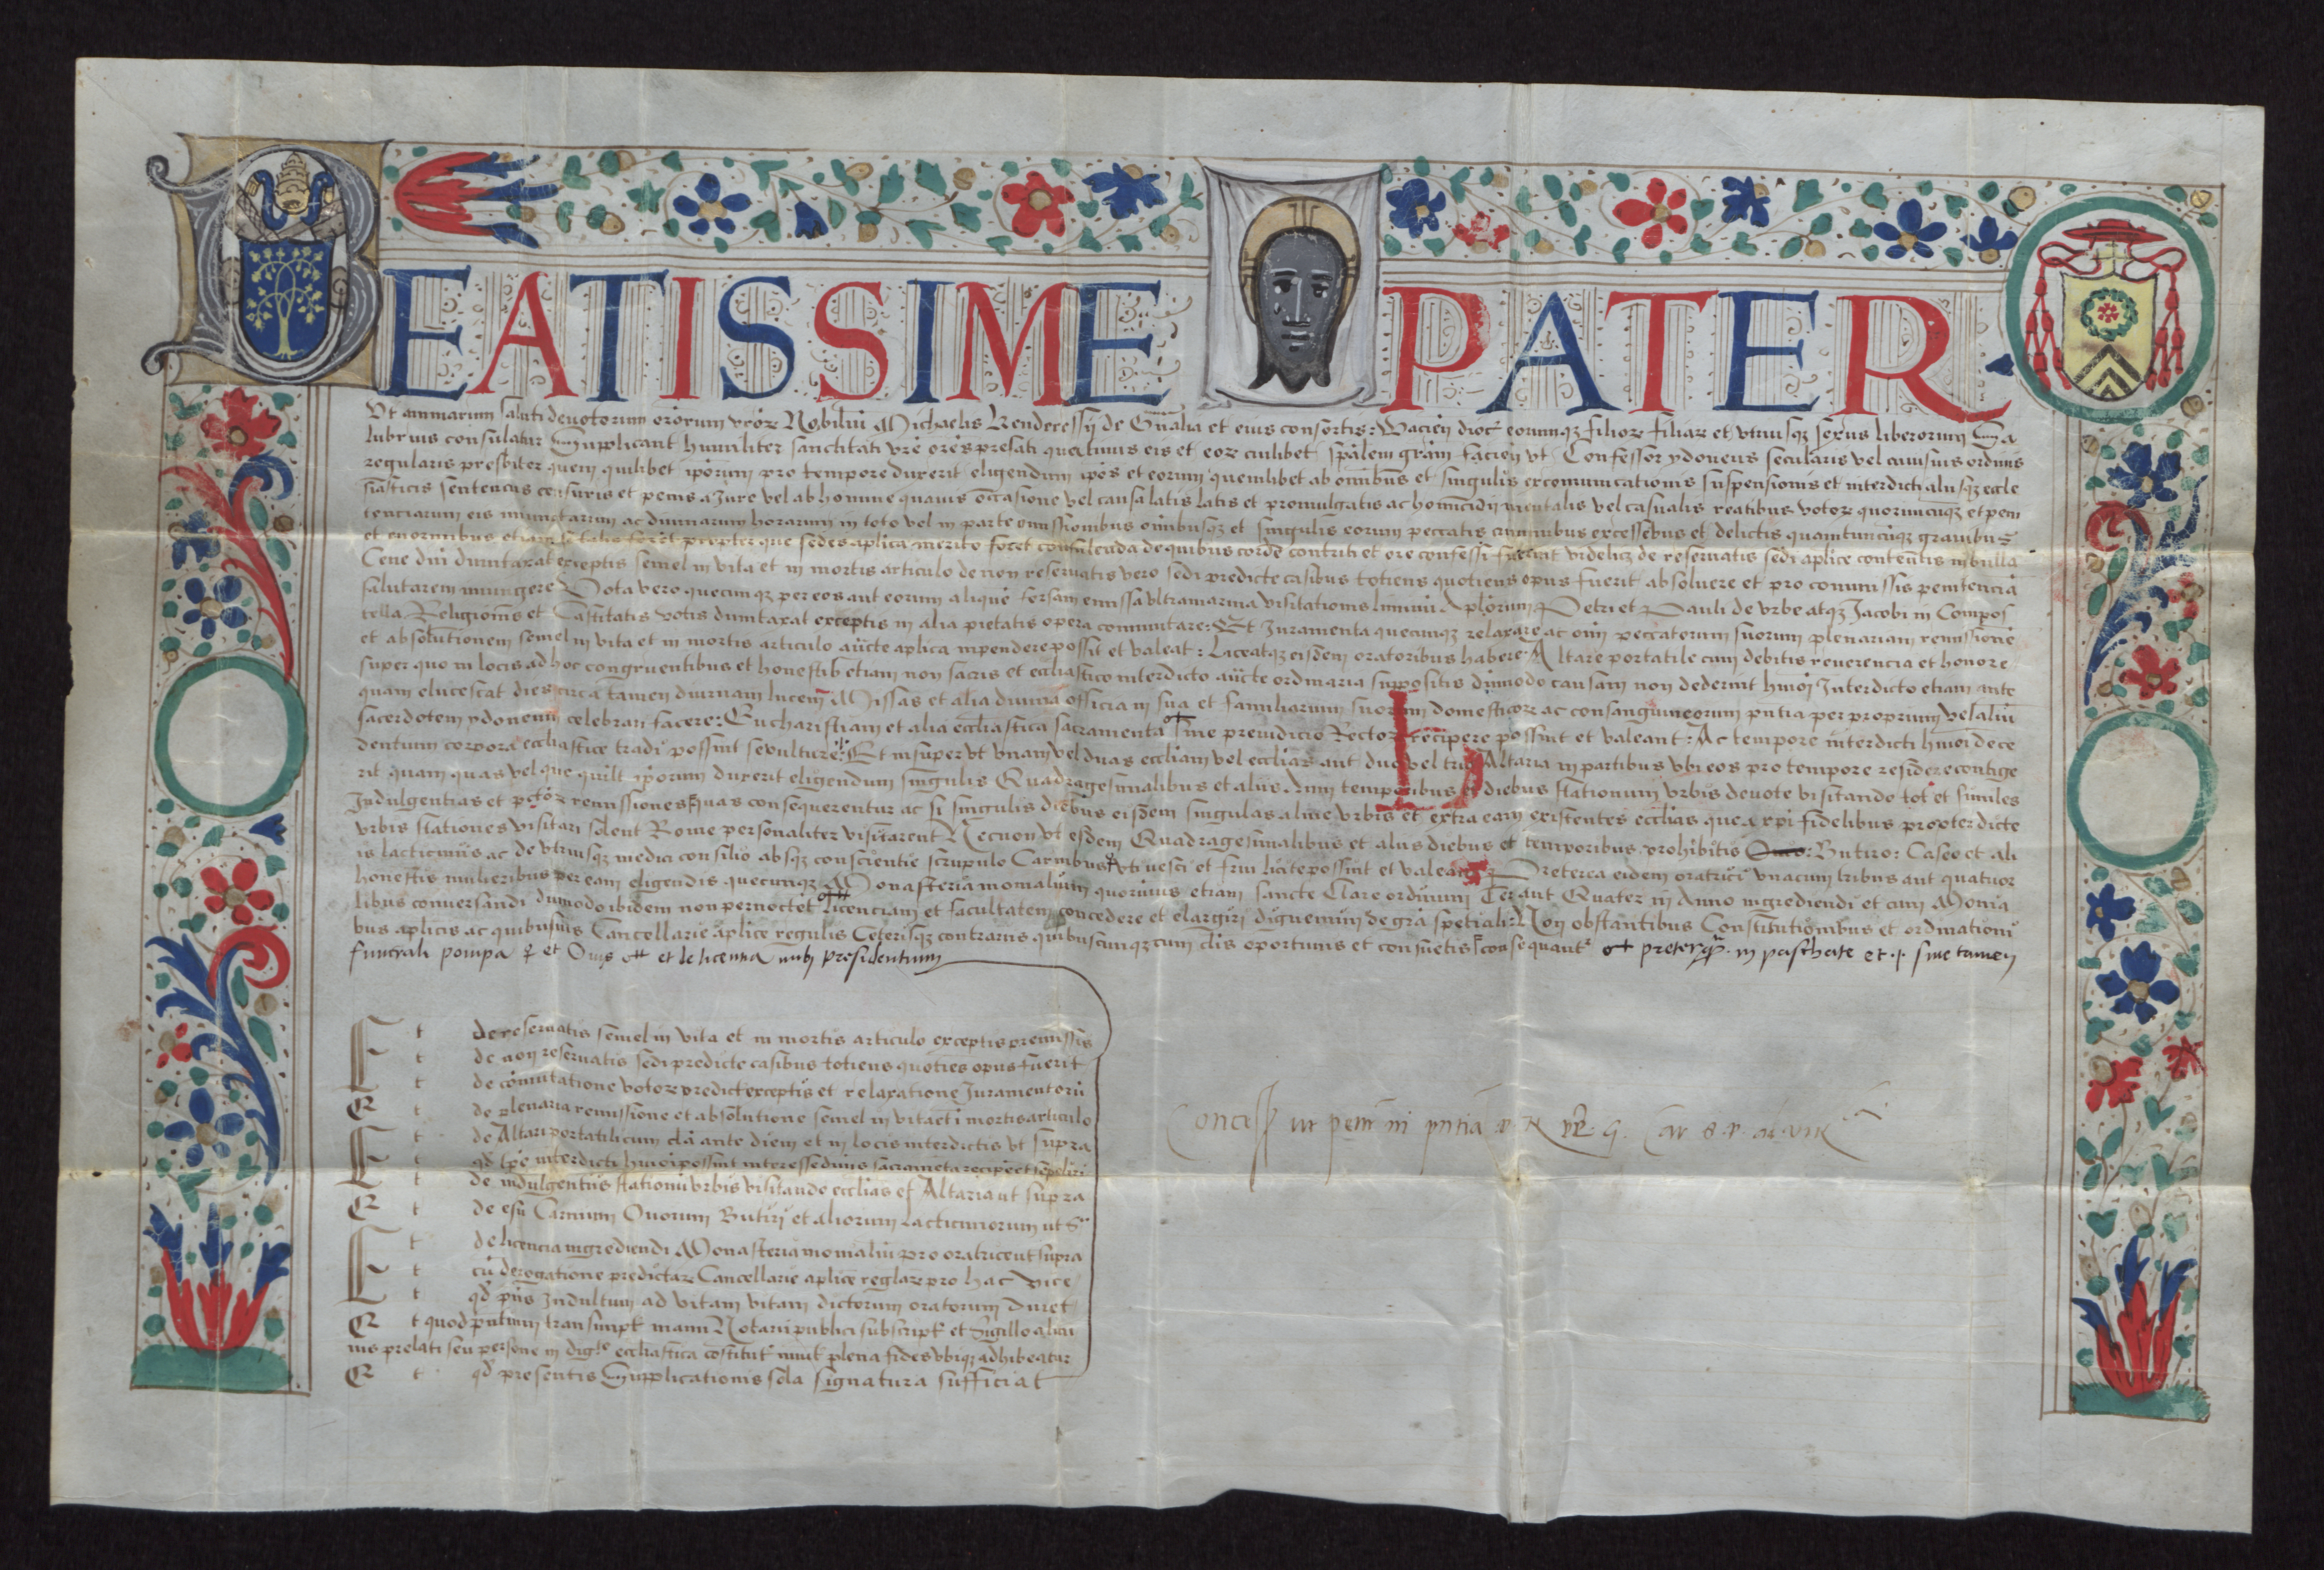 BEATISSIME PATER
Ut animarum saluti devotorum oratorum vrorum Nobiliu Michaelis Kenderessy de et eius consortis: Vacien dioc eorumqz filior filiar et utriusqz sexus liberorum Sa
lubrius consulatur Supplicant humiliter sanctitati vre ores prefati quatenus eis et eor cuilibet spalem gram facien ut Confessor ydoneus secularis vel cuiusuis ordinis
regularis presbiter quem quilibet iporum pro tempore duxerit eligendum ipos et eorum quemlibet ab omnibus et singulis excomunicationis suspensionis et interdicti aliisqz eccle
siasticis sentencus censuris et penis a Jure vel ab homine quauis occasione vel causa latis latis et promulgatis ac homicidij mentalis vel casualis reatibus votor quorumcunqz et peni
tenciarum eis iniunctarum ac diuinarum horarum in toto vel in parte omissionibus omnibusqz et singulis eorum peccatis criminibus excessibus et delictis quantumcunqz grauibus
et enormibus etiam si talia forent propter que sedes aplica merito foret consulenda de quibus corde contriti et ore confessi fuerint videlicz de reservatis sedi aplice contentis in bulla
Cene dni dumtaxat exceptis semel in vita et in mortis articulo de non reservatis vero sedi predicte casibus totiens quotiens opus fuerit absoluere et pro comissis penitencia
salutarem iniungere Vota vero quecumqz per eos aut eorum alique forsam emissa ultramarina visitationis liminu Aplorum Petri et Pauli de vrbe atqz Jacobi in Compos
tella Religionis et Castitatis votis dumtaxat exceptis in alia pietatis opera comutare: Et Juramenta quecumqz relaxare ac oim peccatorum suorum plenariam remissione
et absolutionem semel in vita et in mortis articulo aucte aplica inpendere possit et valeat: Liceatqz eisdem oratoribus habere Altare portatile cum debitis reverencia et honore
super quo in locis ad hoc congruentibus et honestis etiam non sacris et eccliastico interdicto aucte ordinaria suppositis dumodo causam non dederint hmoi Interdicto etiam ante
quam elucescat dies circa tamen diurnam lucem Missas et alia diuina officia in sua et familiarium suorum domesticor ac consanguineorum pntia per proprium vel aliu
sacerdotem ydoneum celebrari facere: Eucharistiam et alia eccliastica sacramenta sine preiudicio Rector recipere possint et valeant: Ac tempore interdicti hmoi dece
dentium corpora eccliastice tradi possint sepulture: Et insuper ut unam vel duas eccliam vel ecclias aut duo vel tria Altaria in partibus ubi eos pro tempore residere contige
rit quam quas vel que quilt iporum duxerit eligendum singulis Quadragesimalibus et aliis Anni temporibus et diebus stationum vrbis devote visitando tot et similes
Indulgentias et pctor remissiones quas consequerentur ac si singulis diebus eisdem singulas alme vrbis et extra eam existentes ecclias que a xpi fidelibus propter dicte
vrbis stationes visitari solent Rome personaliter visitarent Necnon ut eisdem Quadragesimalibus et aliis diebus et temporibus prohibitis Ouo: Butiro: Caseo et ali
is lacticiniis ac de utriusqz medici consilio absqz conscientie scrupulo Carnibus uti vesci et frui licite possint et valeant Preterea eidem oratrici unacum tribus aut quatuor
honestis mulieribus per eam eligendis quecunqz Monasteria monialium quorumuis etiam sancte Clare ordinum Ter aut Quater in Anno ingrediendi et cum Monia
libus conversandi dumodo ibidem non pernoctet licenciam et facultatem concedere et elargiri dignemini de gra speciali: Non obstantibus Constitutionibus et ordinationi
bus aplicis ac quibusuis Cancellarie aplice regulis Ceterisqz contrariis quibuscunqz cum clis oportunis et consuetis consequant preterq in paschate et sine tamen
funerali pompa et Ouis et de licentia inibi presidentium
Et de reservatis semel in vita et in mortis articulo exceptis premissis
Et de non reservatis sedi predicte casibus totiens quoties opus fuerit
Et de comutatione votor predict exceptis et relaxatione Juramentoru
Et de plenaria remissione et absolutione semel in vita et i mortis articulo
Et de Altari portatili cum cla ante diem et in locis interdictis ut supra
Et qd tpe interdicti hmoi possint interesse diuis sacrameta recipe et sepeliri
Et de indulgentiis stationu vrbis visitando ecclias et Altaria ut supra
Et de esu Carnium Ouorum Butiri et aliorum Lacticiniorum ut s
Et de licencia ingrediendi Monasteria monialiu pro oratrice ut supra
Et cu derogatione predictar Cancellarie aplice reglar pro hac vice
Et qd pns Indultum ad vitam vitam dictorum oratorum duret
Et quod pntium transumpt manu Notarii publici subscript et Sigillo alicu
ius prelati seu persone in dig.te eccliastica costitut munit plena fides ubiqz adhibeatur
Et qd presentis Supplicationis sola signatura sufficiat
Concess ut petit in pntia